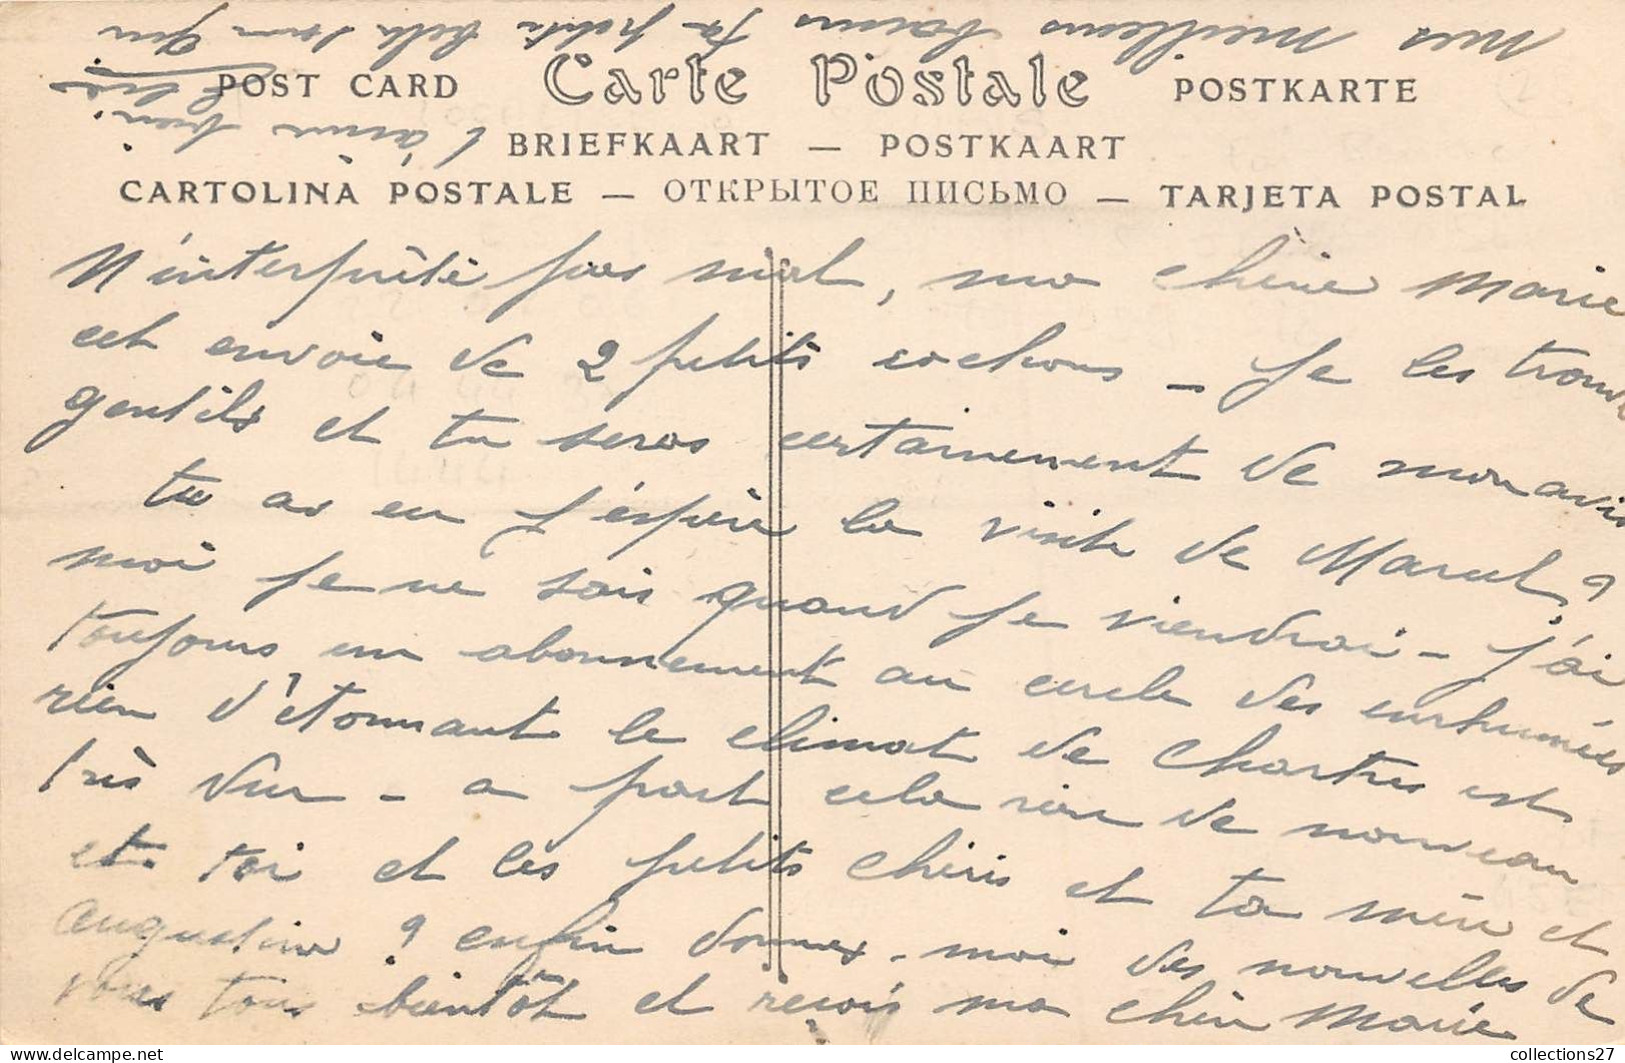 POST CARD Carte Postale POSTKARTE
BRIEFKAART — POSTKAART
CARTOLINA POSTALE — ОТКРЫТОЕ ПИСЬМО — TARJETA POSTAL
N'interprète pas mal, ma chérie Marie
cet envoie de 2 petits cochons — Je les trouve
gentils et tu seras certainement de mon avis
tu as eu j'espère la visite de Marcel ?
moi je ne sais quand je viendrai — j'ai
toujours un abonnement au cercle des enrhumées
rien d'étonnant le climat de Chartres est
très dur — a part cela rien de nouveau
et toi et les petits chéris et ta mère et
Augustine ? enfin donnes-moi des nouvelles de
vous tous bientôt et reçois ma chère Marie
mes meilleurs baisers ta petite qui
t'aime
collections27